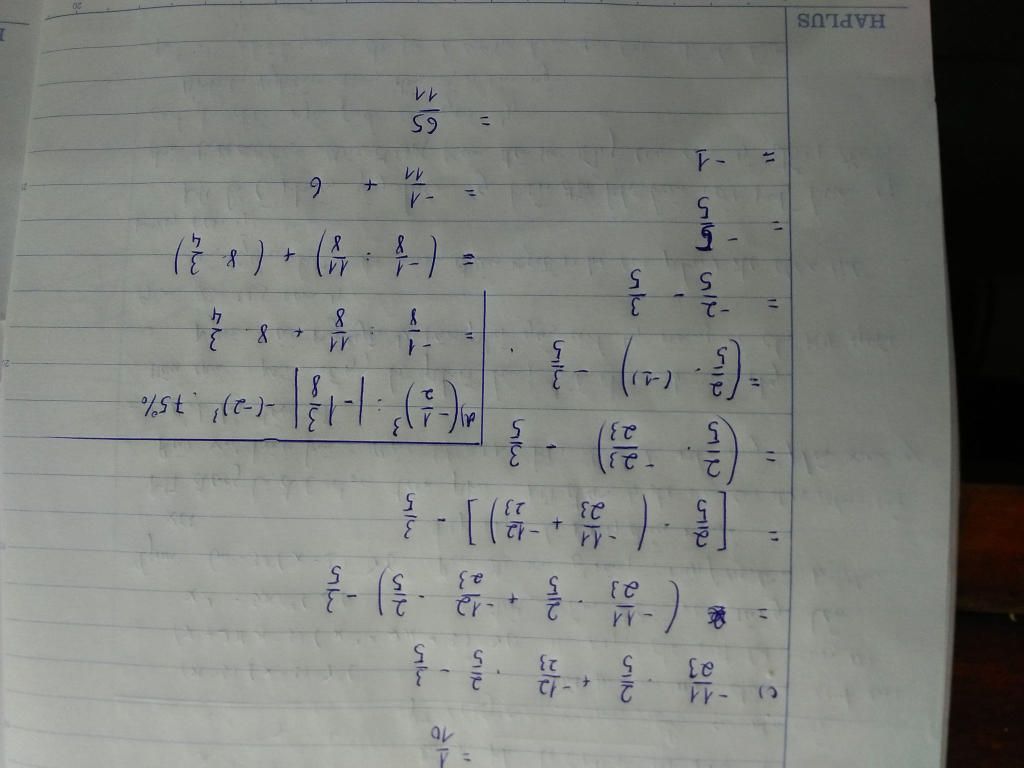 = 1/10
c) -11/23 · 2/5 + -12/23 · 2/5 - 3/5
= (-11/23 · 2/5 + -12/23 · 2/5) - 3/5
= [2/5 · (-11/23 + -12/23)] - 3/5
= (2/5 · -23/23) - 3/5
= (2/5 · (-1)) - 3/5
= -2/5 - 3/5
= -5/5
= -1
d) (-1/2)³ : |-1 3/8| - (-2)³ · 75%
= -1/8 : 11/8 + 8 · 3/4
= (-1/8 : 11/8) + (8 · 3/4)
= -1/11 + 6
= 65/11
HAPLUS
20